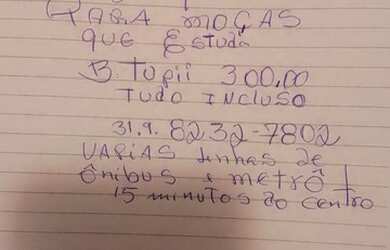 PARA MOÇAS
QUE EStuda
B. Tupii 300,00
TUDO INCLUSO
31.9.8232-7802
VARIAS Linhas de
Ônibus e metrô
15 minutos do centro